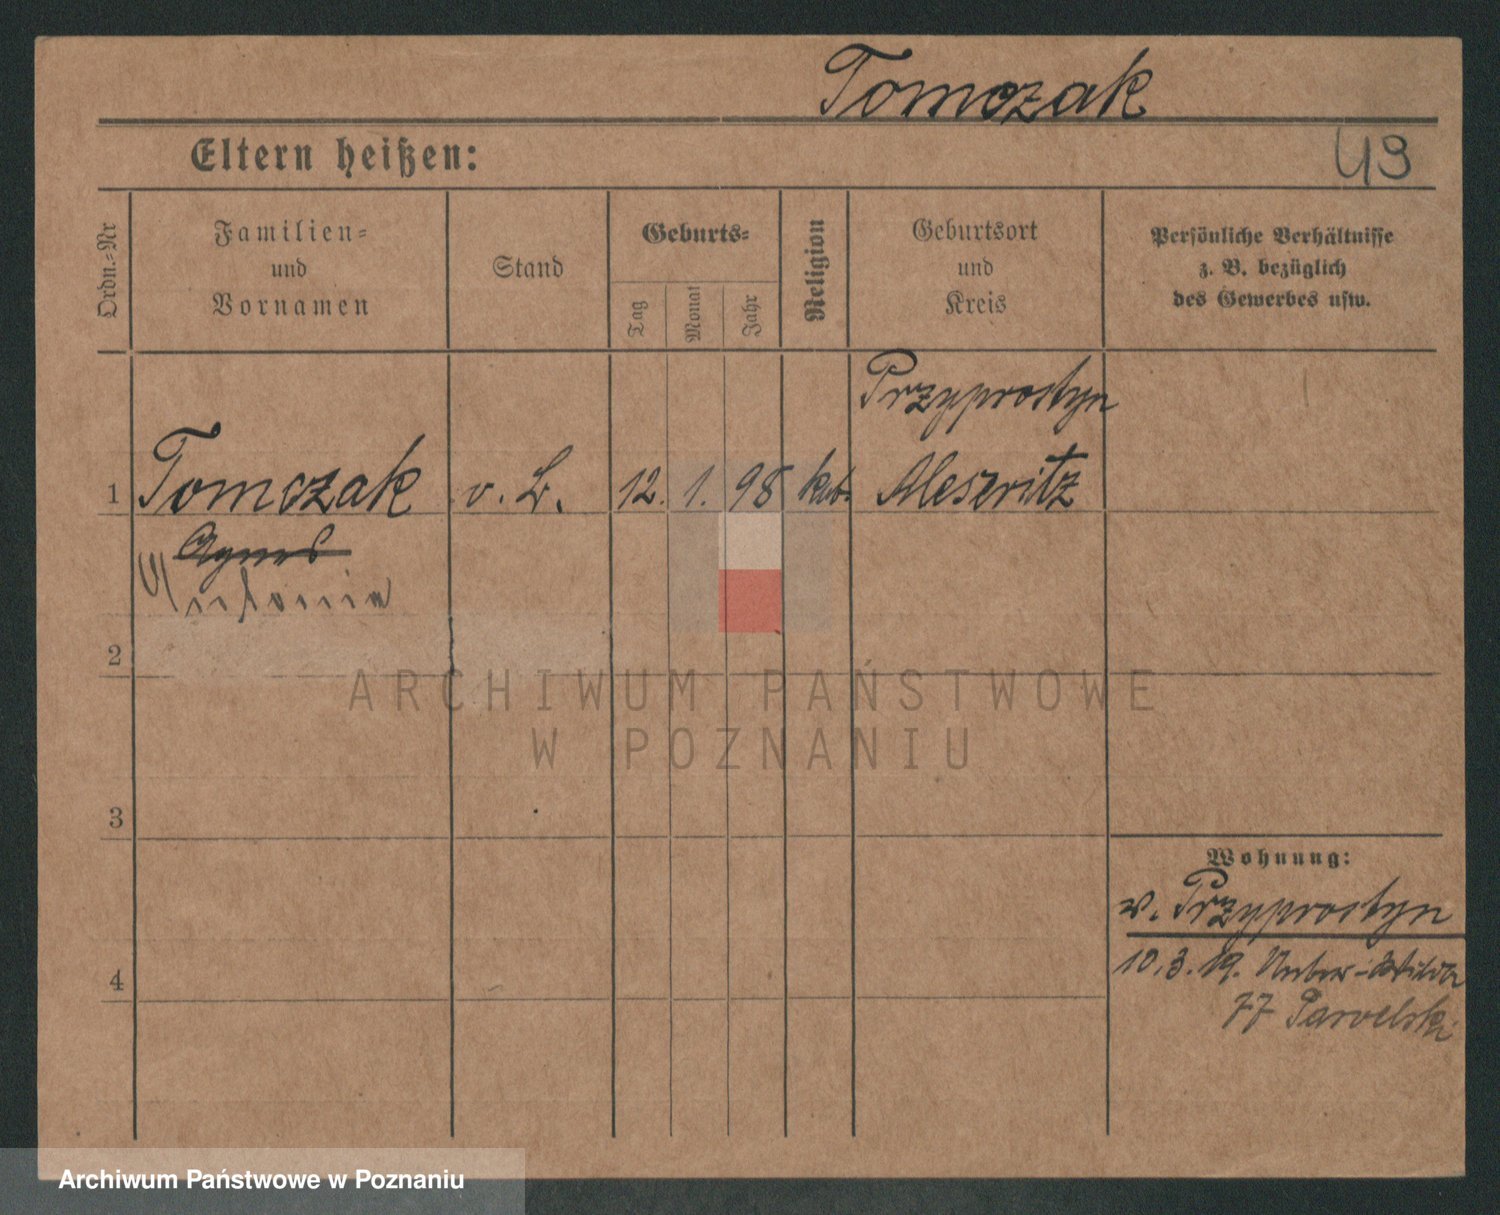 Tomczak
Eltern heißen:
49
Ordn.-Nr
Familien-
und
Vornamen
Stand
Geburts-
Tag
Monat
Jahr
Religion
Geburtsort
und
Kreis
Persönliche Verhältnisse
z. B. bezüglich
des Gewerbes usw.
Przyprostyn
1 Tomczak v. L. 12. 1. 98 kath. Meseritz
Agnes
Antonia
2
ARCHIWUM PAŃSTWOWE
W POZNANIU
3
Wohnung:
v. Przyprostyn
4
10.3.19. Unter-Wilda
77
Archiwum Państwowe w Poznaniu